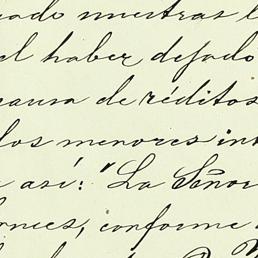 nuestras l
el haber dejado
causa de réditos
los menores in
así: "La Señor
conforme